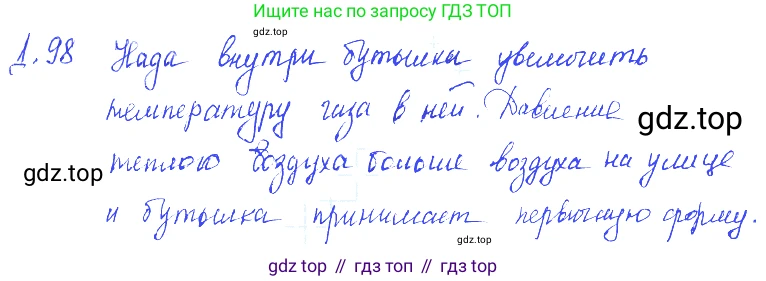 Ищите нас по запросу ГДЗ ТОП
gdz.top
1.98 Нада внутри бутылки увеличить
температуру газа в ней. Давление
gdz.top
теплого воздуха больше воздуха на улице
gdz.top
и бутылка принимает первичную форму.
gdz.top
gdz.top // гдз топ // gdz top